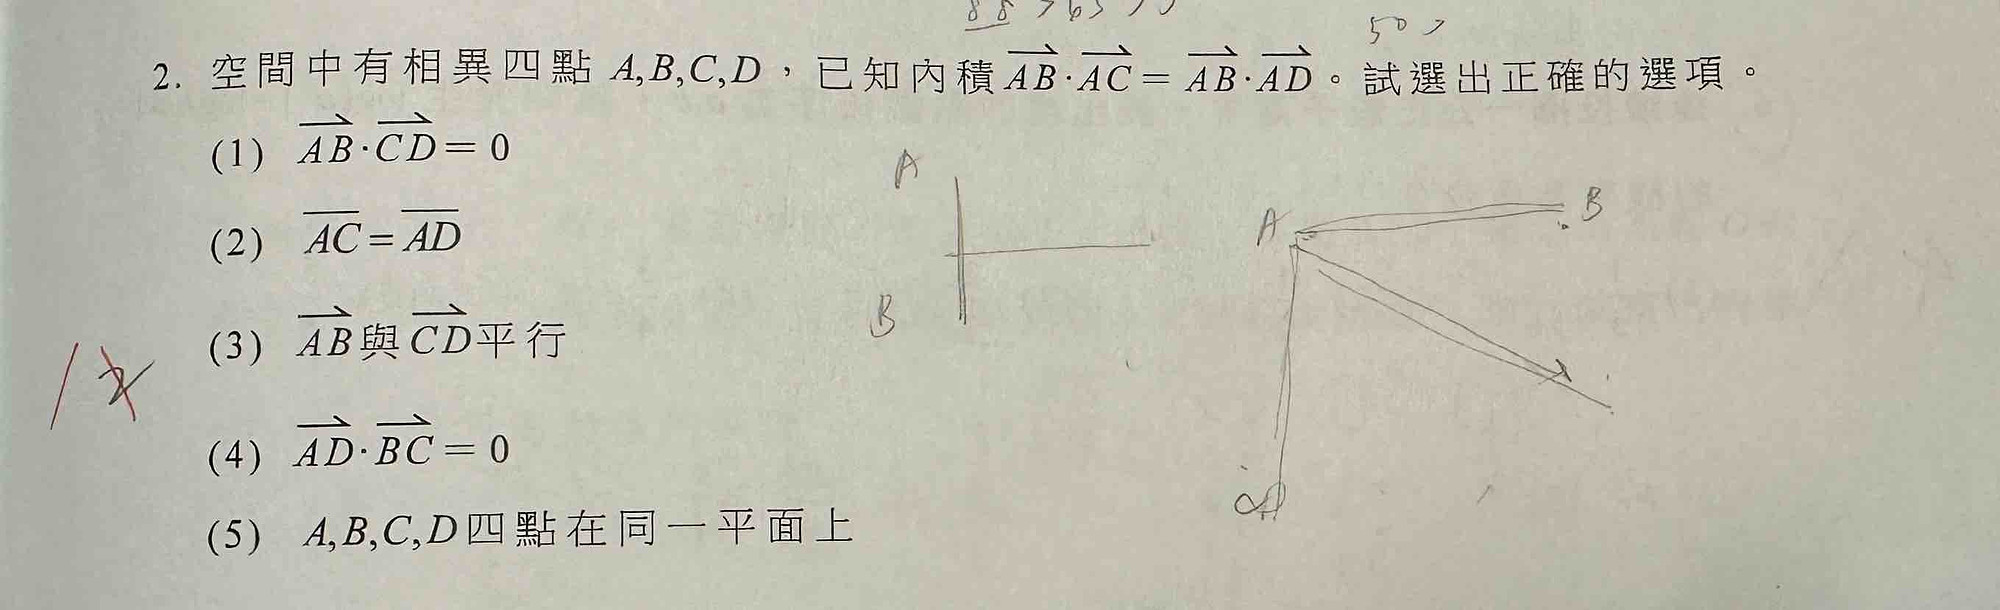 50 >
2. 空間中有相異四點 A,B,C,D，已知內積 $\overrightarrow{AB}\cdot\overrightarrow{AC}=\overrightarrow{AB}\cdot\overrightarrow{AD}$。試選出正確的選項。
(1) $\overrightarrow{AB}\cdot\overrightarrow{CD}=0$
A
(2) $\overline{AC}=\overline{AD}$
A B
(3) $\overrightarrow{AB}$與$\overrightarrow{CD}$平行
B
(4) $\overrightarrow{AD}\cdot\overrightarrow{BC}=0$
(5) A,B,C,D四點在同一平面上